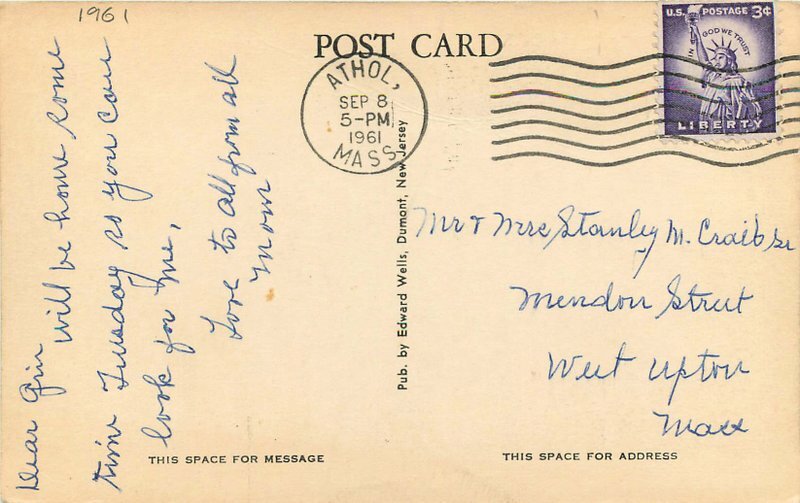 1961
POST CARD
ATHOL,
SEP 8
5-PM
1961
MASS
U.S. POSTAGE 3¢
IN GOD WE TRUST
LIBERTY
Dear Gin
will be home some
time Tuesday so you can
look for me,
Love to all from all
Mom
Pub. by Edward Wells, Dumont, New Jersey
Mr & Mrs Stanley M. Craib Sr
Mendon Street
West Upton
Mass
THIS SPACE FOR MESSAGE
THIS SPACE FOR ADDRESS